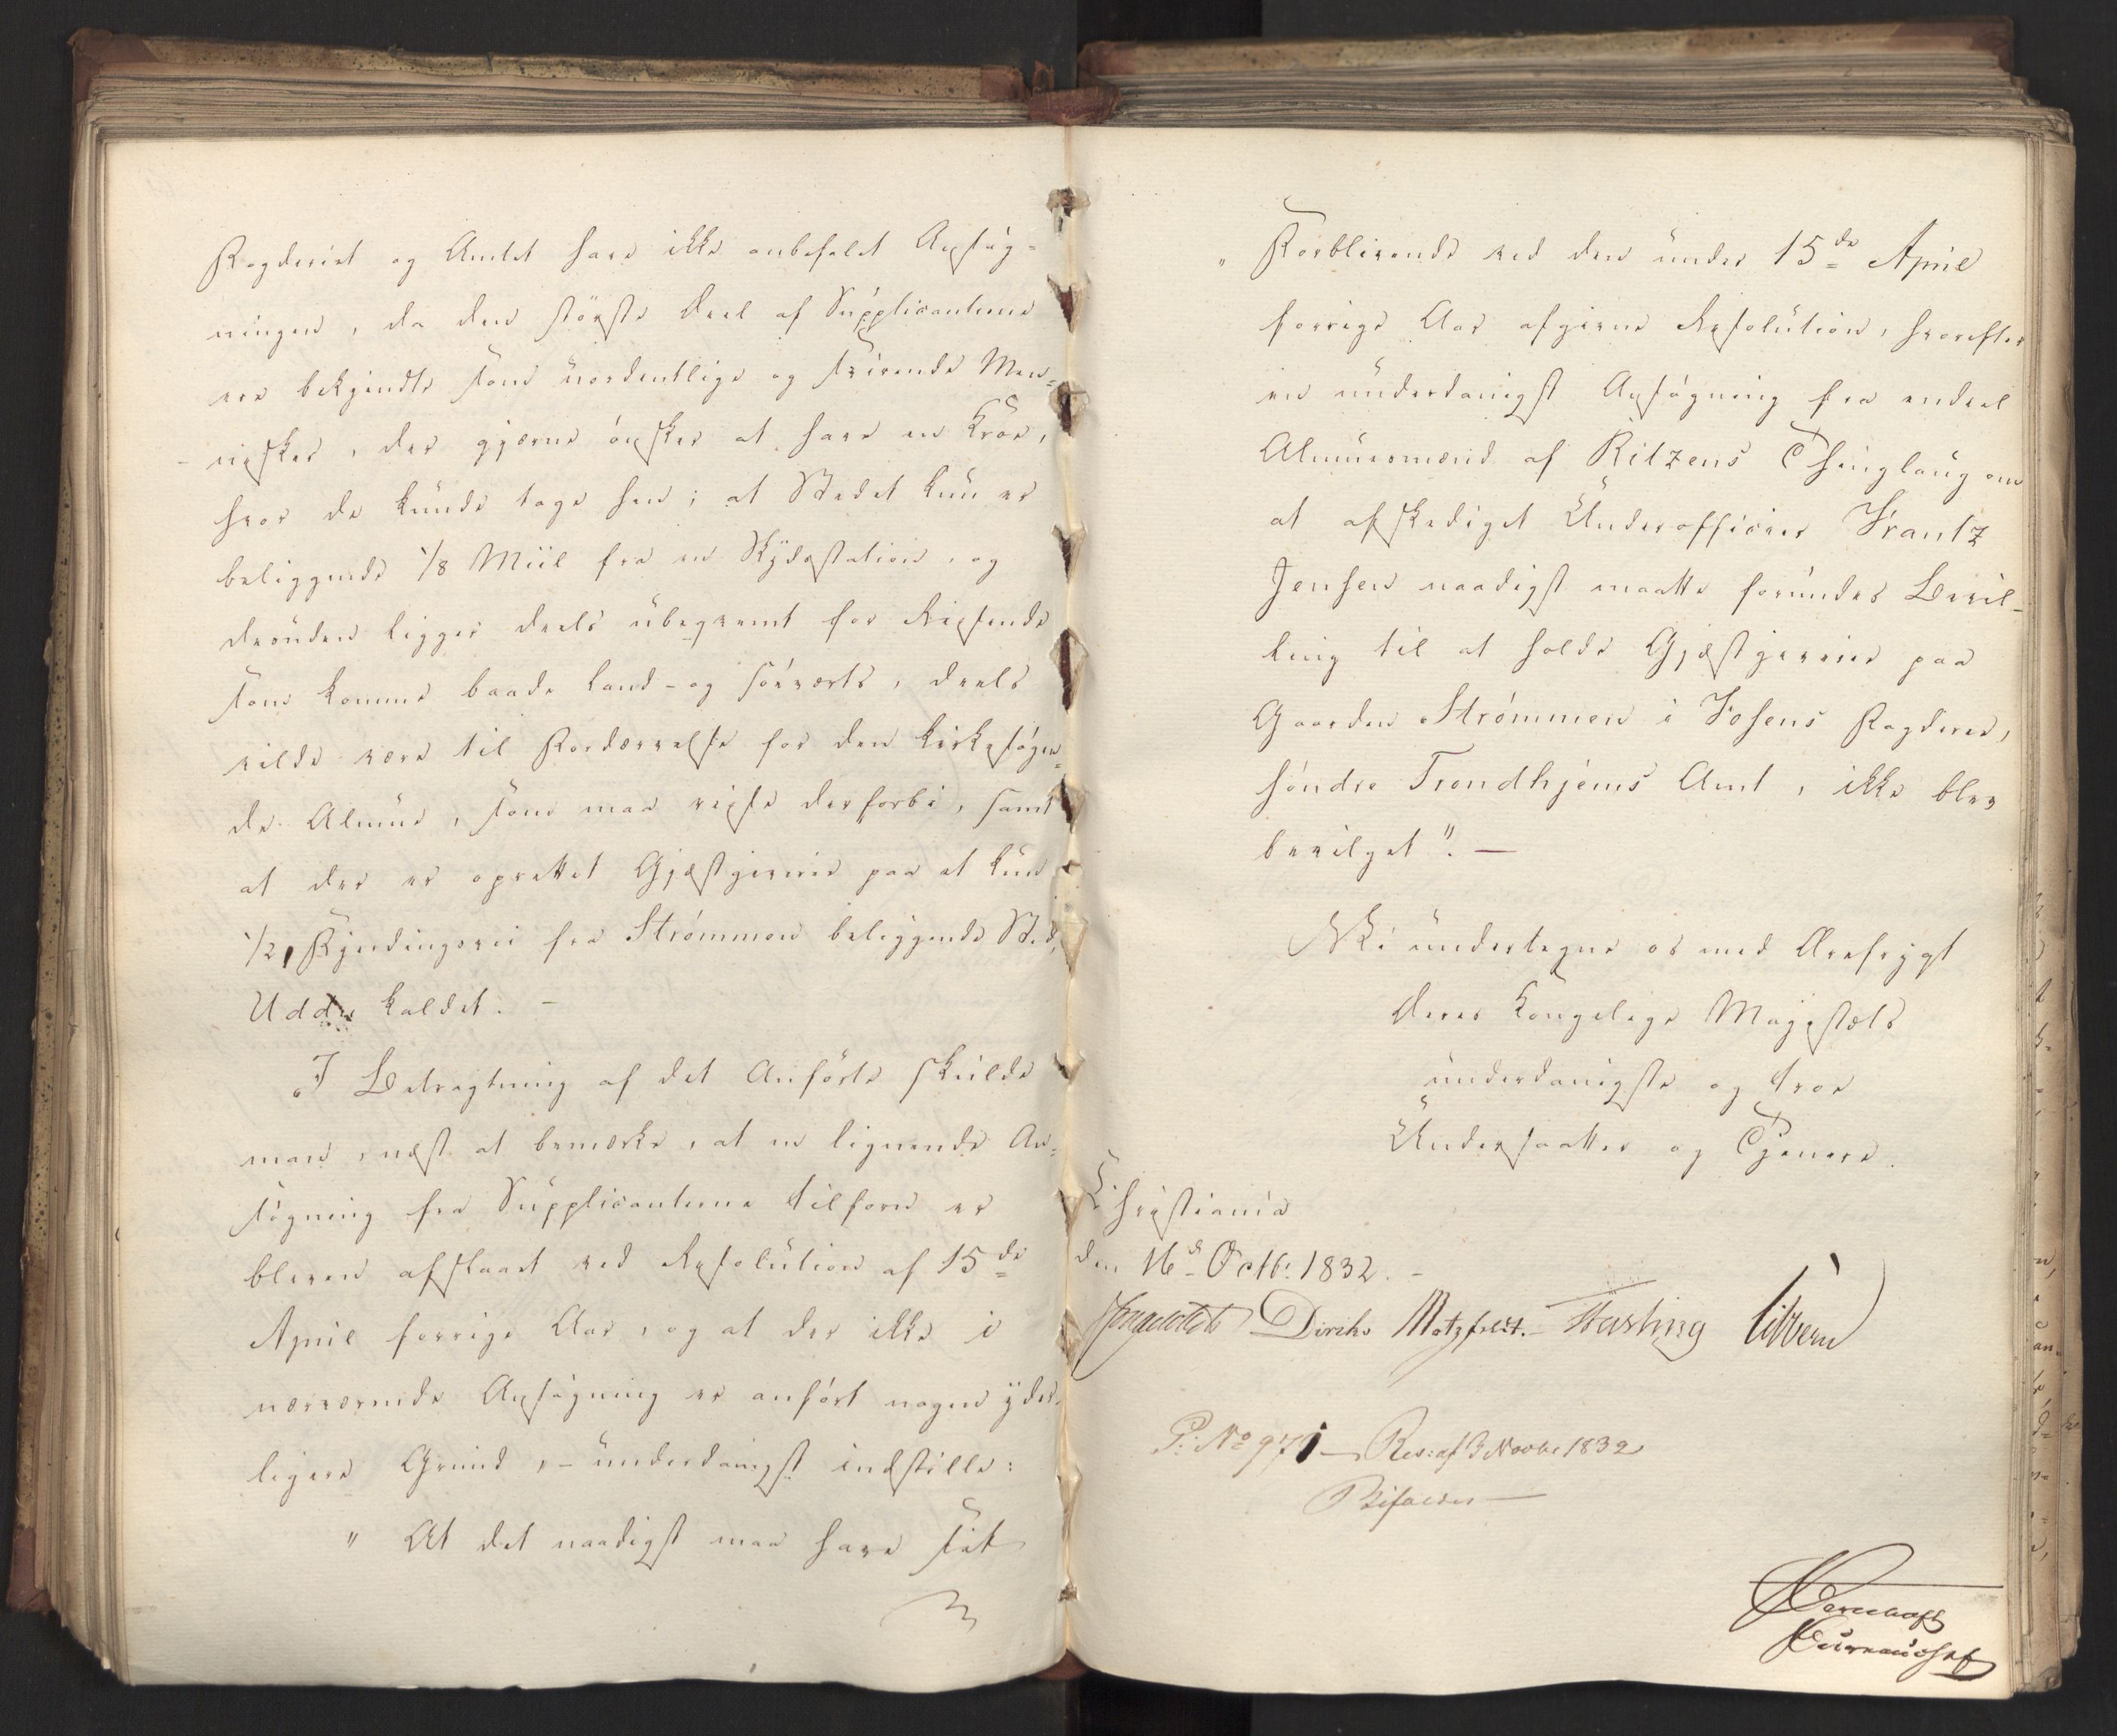 Fogderiet og Amtet have ikke anbefalet Ansøg-
ningen, da den største Deel af Supplicanterne
ere bekjendte som uordentlige og svirende Men-
nesker, der gjerne ønsker at have en Kroe,
hvor de kunde tage hen; at Stedet kun er
beliggende 1/8 Miil fra en Skydsstation, og
desuden ligger deels ubeqvemt for Reisende
som komme baade land- og søeværts, deels
vilde være til Fordærvelse for den kirkesøgen-
de Almue, som maa reise derforbi, samt
at der er oprettet Gjæstgiverie paa et kun
1/2 Fjerdingsvei fra Strømmen beliggende Sted,
Udde kaldet. -
I Betragtning af det Anførte skulde
man, næst at bemærke, at en lignende An-
søgning fra Supplicanterne tilforn er
bleven afslaaet ved Resolution af 15de
April forrige Aar, og at der ikke i
nærværende Ansøgning er anført nogen yder-
ligere Grund, - underdanigst indstille:
" At det naadigst maa have sit
" Forblivende ved den under 15de April
forrige Aar afgivne Resolution, hvorefter
en underdanigst Ansøgning fra endeel
Almuesmænd af Ritzens Thinglaug om
at afskediget Underofficier Frantz
Jensen naadigst maatte forundes Bevil-
ling til at holde Gjæstgiverie paa
Gaarden Strømmen i Fosens Fogderie,
søndre Trondhjems Amt, ikke blev
bevilget". -
Vi undertegne os med Ærefrygt
Deres Kongelige Majestæts
underdanigste og troe
Undersaatter og Tjenere.
Christiania
den 16d Octb: 1832. -
Diriks Motzfeldt. - Fasting Sibbern
P: No 971 - Res: af 3 Novbr 1832
Bifaldes -